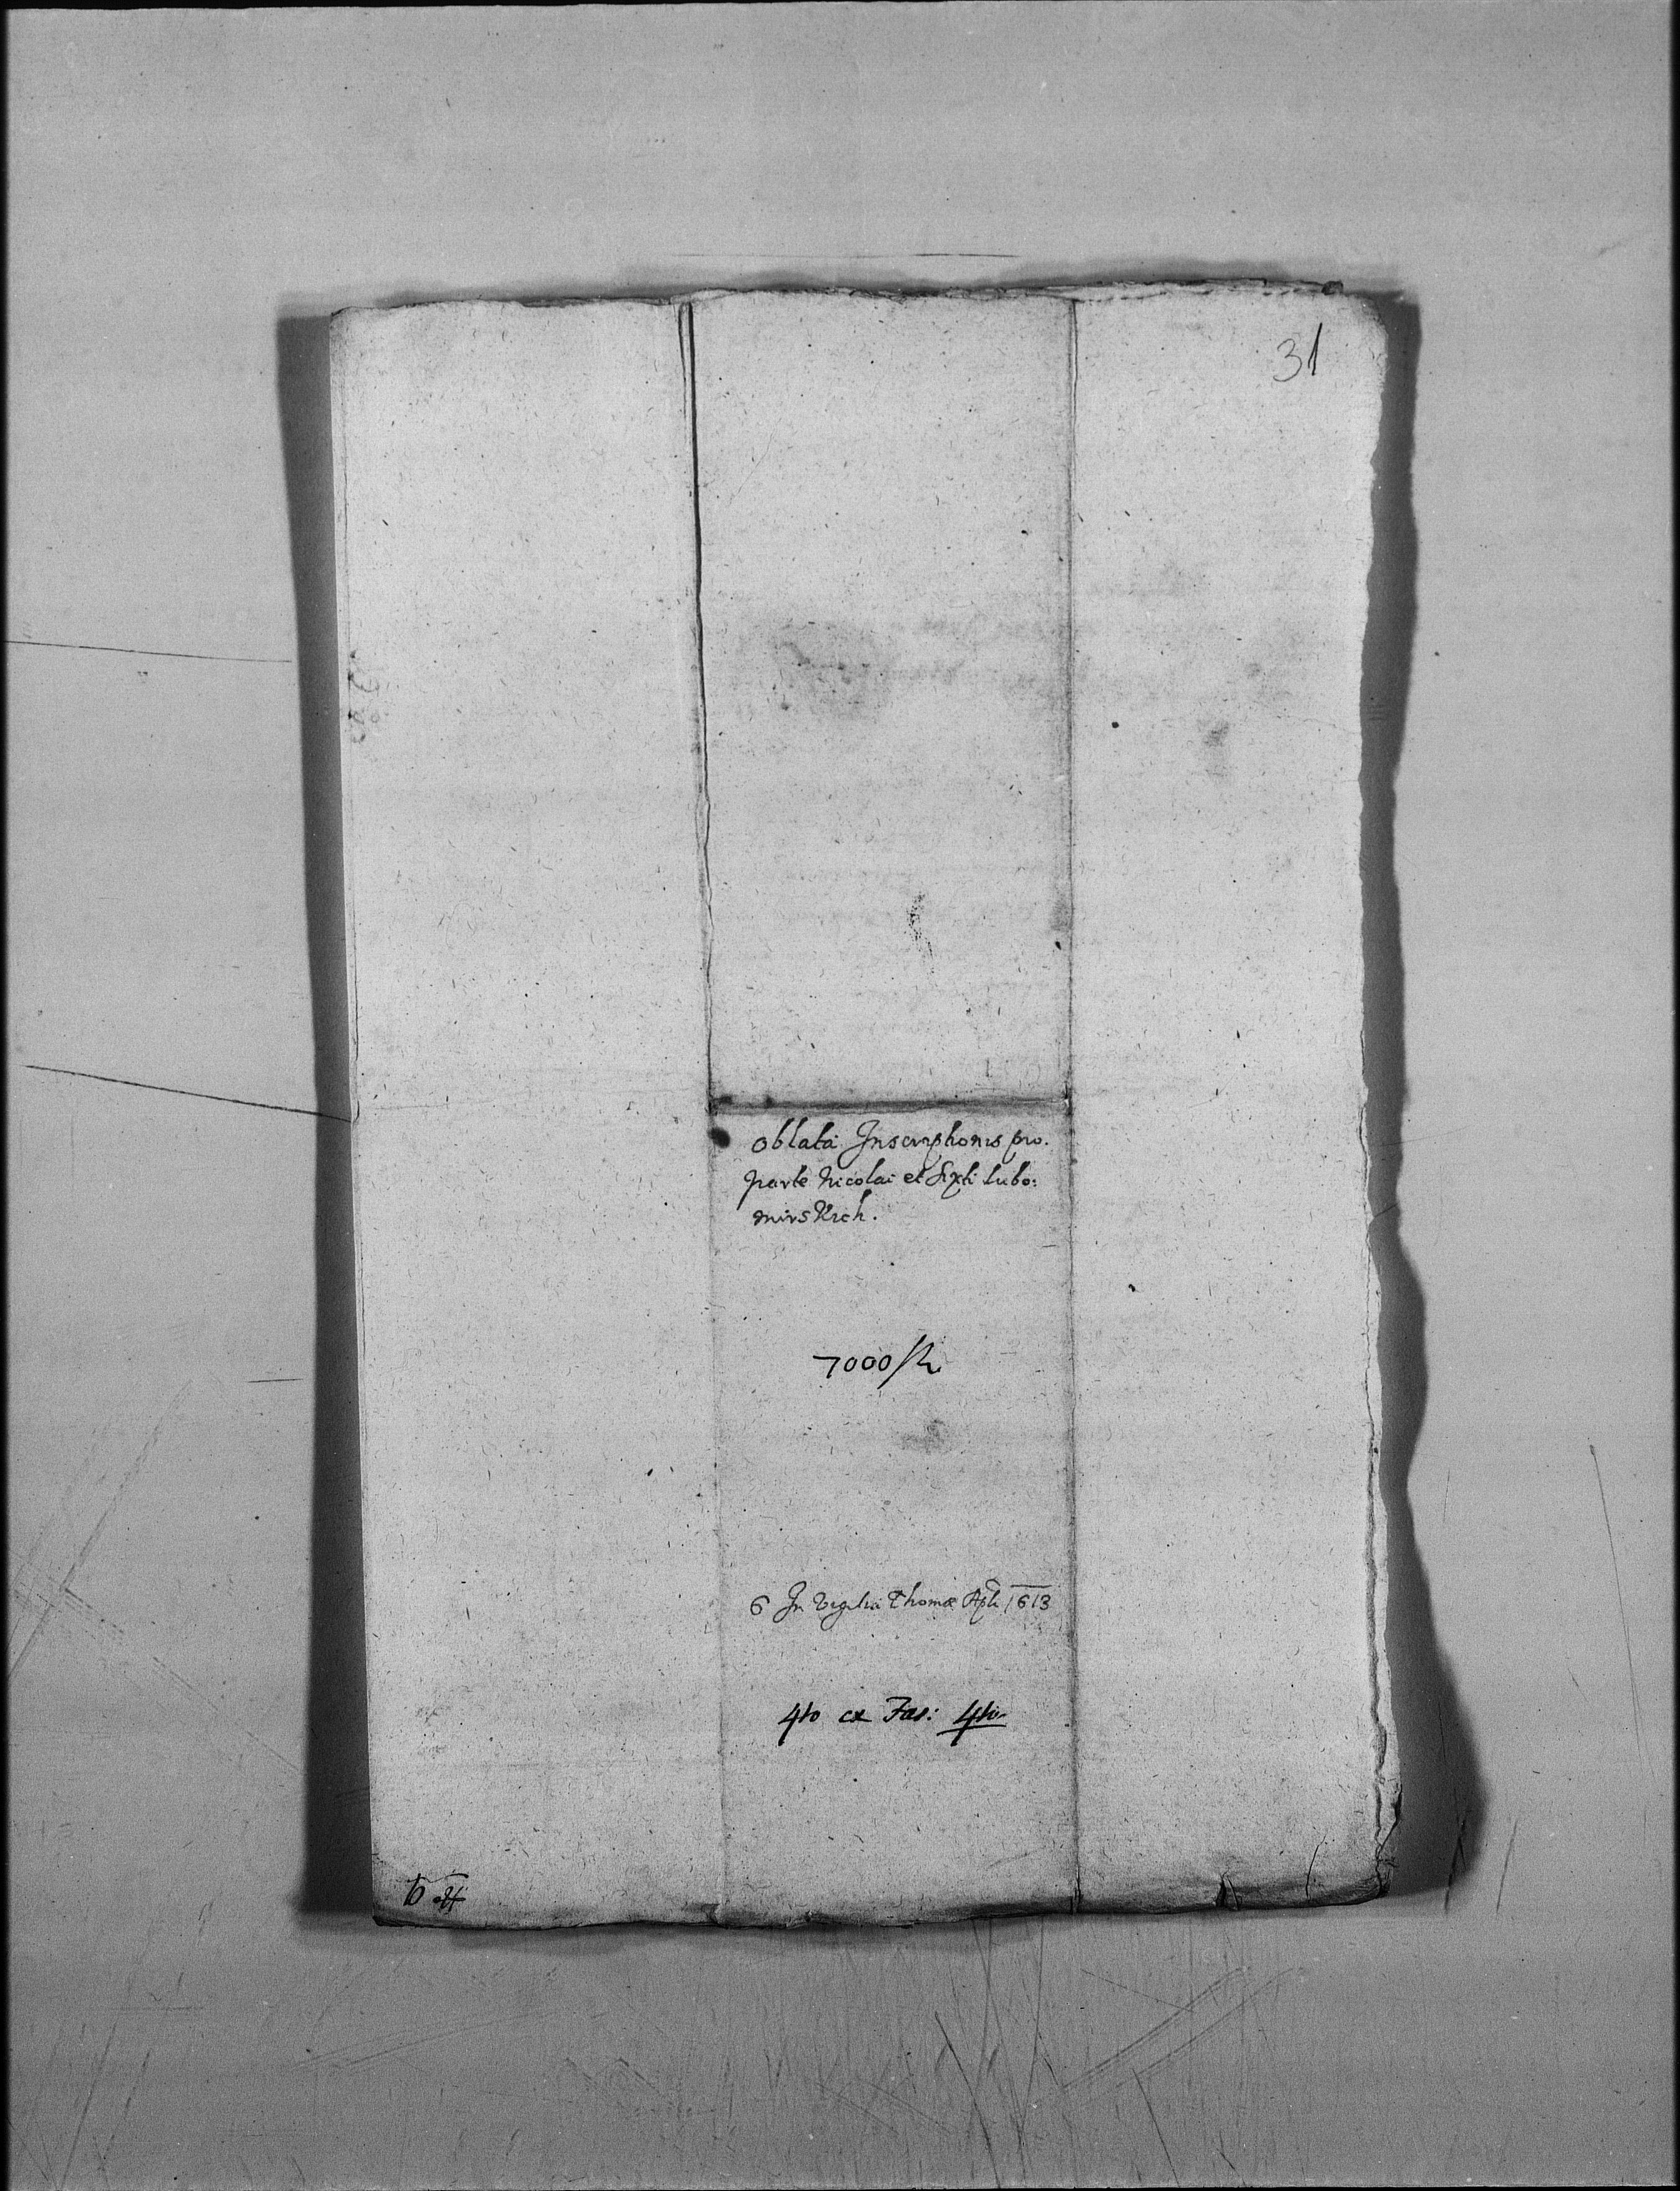 31
Oblata Inscriptionis pro
parte Nicolai et Sixti Lubo:
mirskich.
7000 fl
6 In Vigilia Thomæ Apli 1613
4to ex Fas: 4to